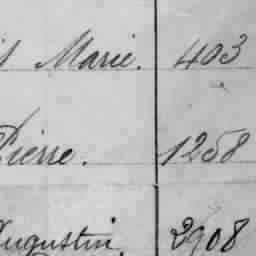 Marie. 403
Pierre. 1258
Augustin. 2908